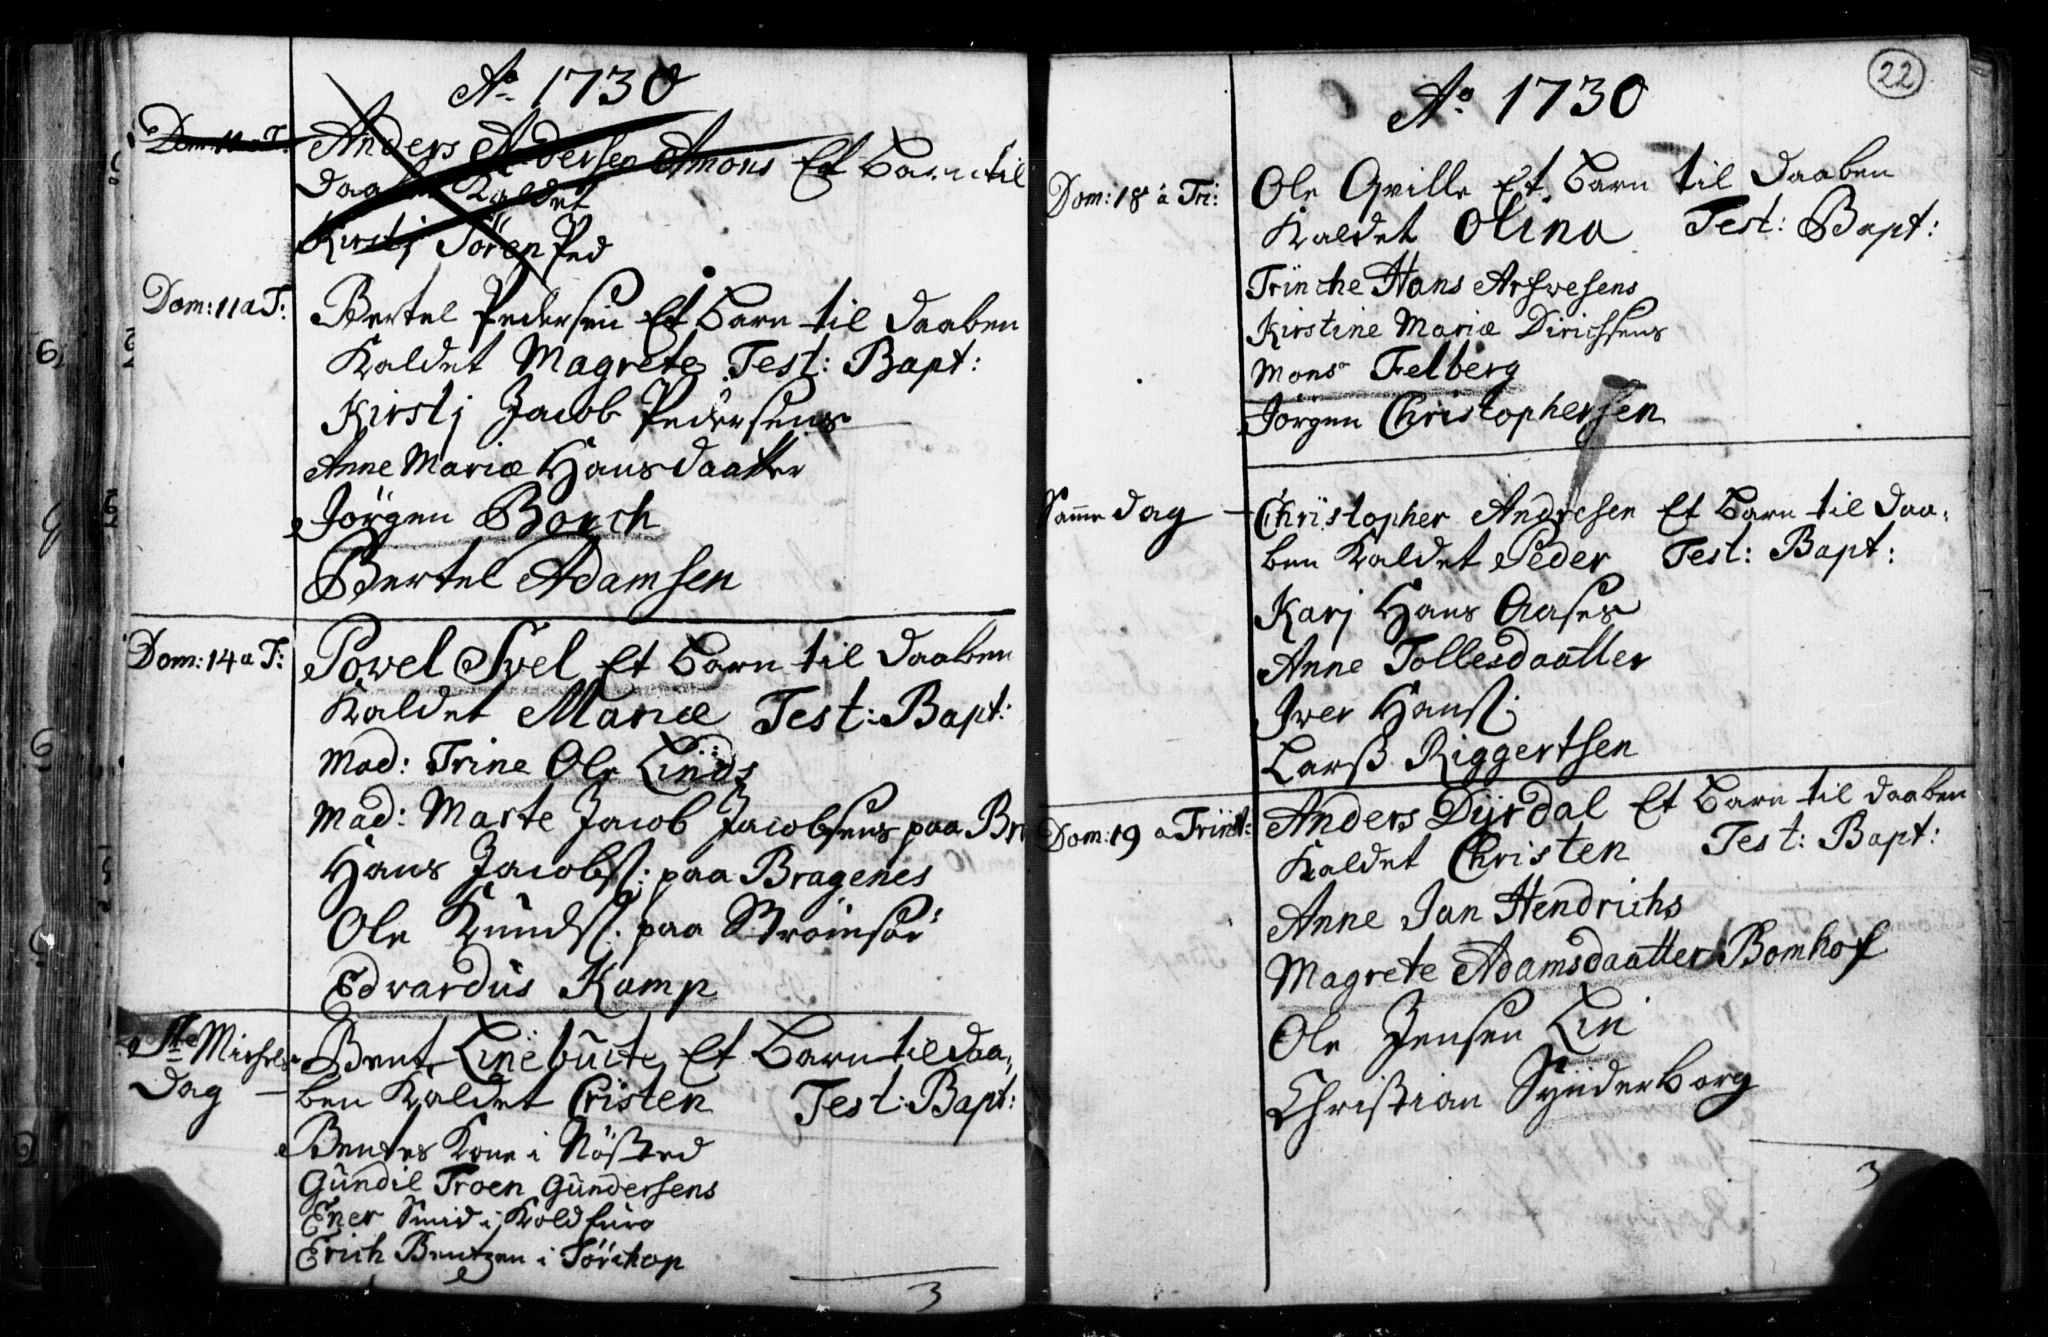 Ao 1730
Dom: 11 a T: Anders Andersen Amons Et Barn til
Daaben Kaldet
Kirsti Sören Ped
Dom: 11 a T: Bertel Pedersen Et Barn til Daaben
Kaldet Magrete Test: Bapt:
Kirstj Jacob Pedersens
Anne Mariæ Hansdaatter
Jörgen Borch
Bertel Adamsen
Dom: 14 a T: Powel Svel Et Barn til Daaben
Kaldet Mariæ Test: Bapt:
Mad: Trine Ole Linds
Mad: Marte Jacob Jacobsens paa Br
Hans Jacobs: paa Bragenes
Ole Knuds: paa Strömsöe
Edvardus Kamp
Ste Michels Bent Linebuite Et Barn til Daa,
Dag – ben Kaldet Cristen Test: Bapt:
Bentes Kone i Nößted
Gundil Troen Gundersens
Ener Smid i
Erich Bentzen i Törchop
3
22
Ao 1730
Dom: 18 a Tri: Ole Qville Et Barn til Daaben
Kaldet Olina Test: Bapt:
Trinche Hans
Kirstine Mariæ Dirichsens
Monsr Felberg
Jörgen Christophersen
Samme Dag – Christopher Andresen Et Barn til Daa,
ben Kaldet Peder Test: Bapt:
Karj Hans Aases
Anne Tollesdaatter
Iver Hans:
Larß Riggertsen
Dom: 19 a Trinit: Anders Dyrdal Et Barn til Daaben
Kaldet Christen Test: Bapt:
Anne Jan Hendrichs
Magrete Adamsdaatter Bomhof
Ole Jensen Lin
Christian Synderborg
3